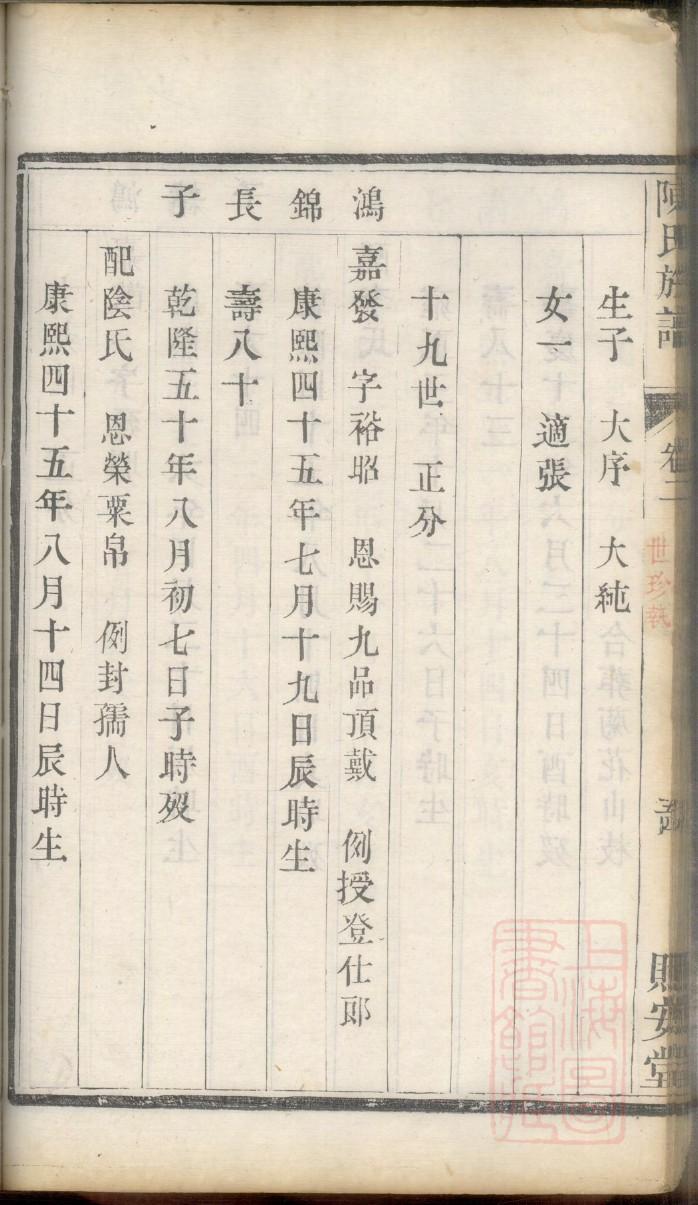 陳氏族譜 卷二
世珍執
賜安堂
生子 大序 大純
女一 適張
十九世 正分
鴻 嘉發 字裕昭 恩賜九品頂戴 例授登仕郎
錦 康熙四十五年七月十九日辰時生
長 壽八十
子 乾隆五十年八月初七日子時歿
配陰氏 恩榮粟帛 例封孺人
康熙四十五年八月十四日辰時生
上海圖書館藏